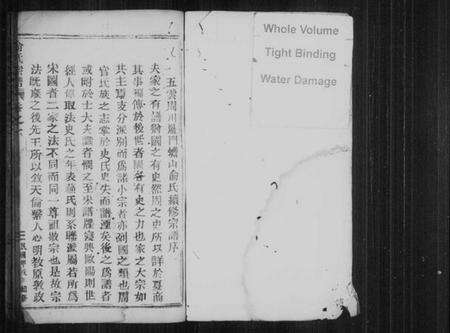 五雲周川巖門礄山俞氏續修宗譜序
夫家之有譜猶國之有史然周之史所以詳於夏商
其事備傳於後世者固各有史之力也家之大宗如
共主尊支分派別而為諸小宗者亦列國之類也周
官氏族之志掌於史氏史失而譜湮矣後之為譜者
或時於士大夫識者憫之至宋譜牒寖興歐陽則世
經人緯取法史氏之年表蘇氏則系聯派屬若所為
宋圖者二家之法不同而同一尊祖敬宗也是故宗
法既廢之後先王所以敘天倫繫人心明教原敦政
Whole Volume
Tight Binding
Water Damage